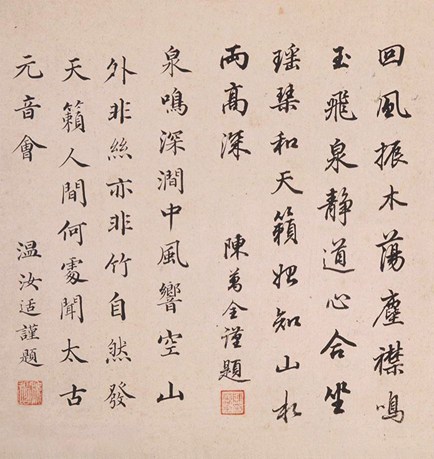 回風振木蕩塵襟鳴
玉飛泉静道心合坐
瑶琴和天籟始知山水
兩高深　陳萬全謹題
泉鳴深澗中風響空山
外非絲亦非竹自然發
天籟人間何處聞太古
元音會　温汝适謹題